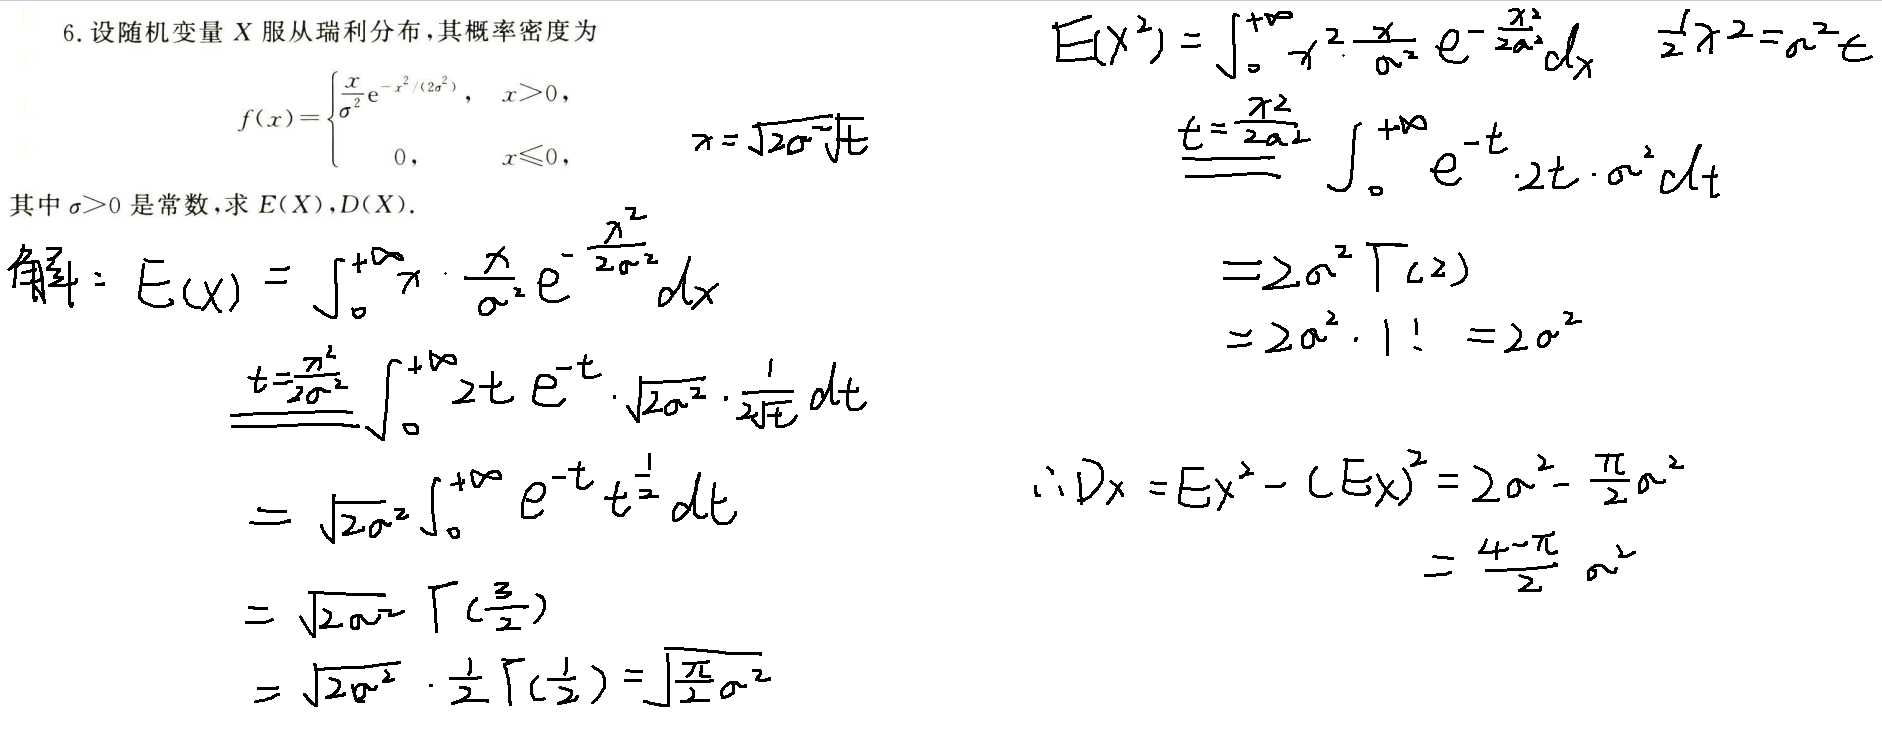 6. 设随机变量 X 服从瑞利分布,其概率密度为
f(x)={ x/σ² e^{-x²/(2σ²)}, x>0,
0, x≤0,
其中 σ>0 是常数,求 E(X),D(X).
x=√(2σ²)√t
解: E(X) = ∫₀^{+∞} x · x/σ² e^{-x²/2σ²} dx
t=x²/2σ² ∫₀^{+∞} 2t e^{-t} · √(2σ²) · 1/(2√t) dt
= √(2σ²) ∫₀^{+∞} e^{-t} t^{1/2} dt
= √(2σ²) Γ(3/2)
= √(2σ²) · 1/2 Γ(1/2) = √(π/2 σ²)
E(X²) = ∫₀^{+∞} x² · x/σ² e^{-x²/2σ²} dx 1/2 x² = σ² t
t=x²/2σ² ∫₀^{+∞} e^{-t} · 2t · σ² dt
=2σ² Γ(2)
= 2σ² · 1! = 2σ²
∴ DX = EX² - (EX)² = 2σ² - π/2 σ²
= (4-π)/2 σ²